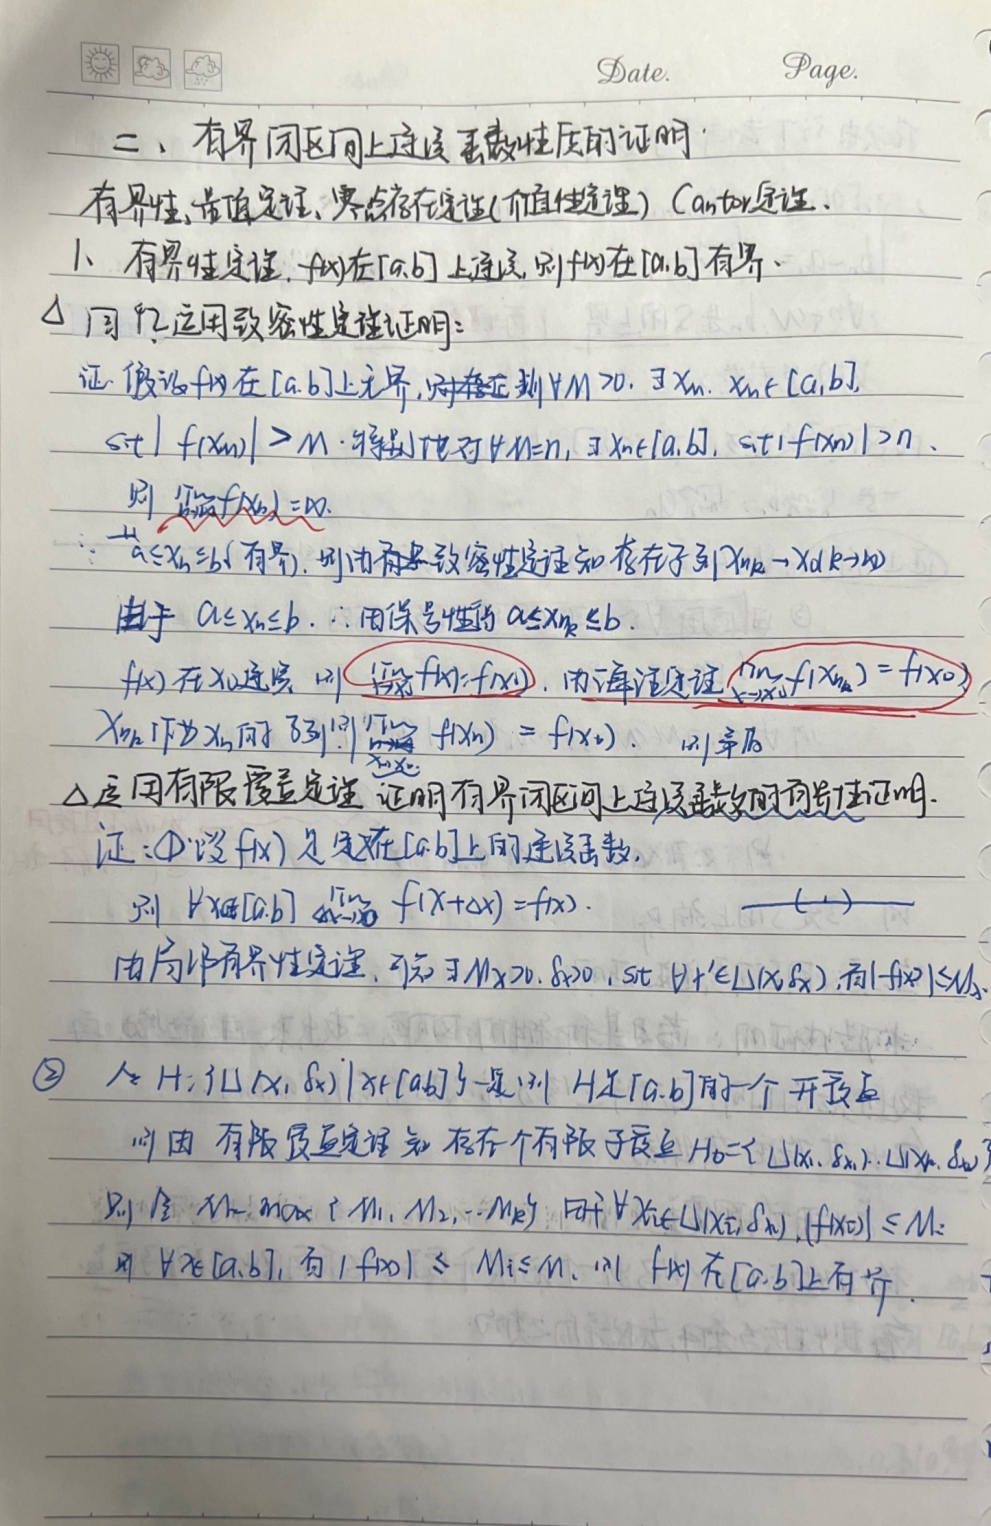 Date. Page.
二、有界闭区间上连续函数性质的证明.
有界性、最值定理、零点存在定理(介值性定理) Cantor定理.
1、有界性定理. f(x)在[a.b]上连续,则f(x)在[a.b]有界.
△ 用 应用致密性定理证明:
证. 假设f(x)在[a.b]上无界, 则∀M>0. ∃xm. xm∈[a,b],
s.t| f(xm)| > M. 特别地对∀M=n, ∃xn∈[a,b], s.t|f(xn)|>n.
则 lim f(xn)=∞.
∵ a≤xn≤b(有界). 则由致密性定理知存在子列xnk→x0(k→∞)
由于 a≤xn≤b. ∴由保号性得 a≤xnk≤b.
f(x)在x0连续 则 lim f(x)=f(x0). 由海涅定理 lim x→x0 f(xnk)=f(x0)
xnk作为xn的子列则 lim x→x0 f(xn) = f(x0). 则矛盾
△应用有限覆盖定理 证明有界闭区间上连续函数的有界性证明.
证:①设f(x)是定义在[a.b]上的连续函数.
则 ∀x∈[a.b] lim Δx→0 f(x+Δx)=f(x).
由局部有界性定理. 可知∃Mx>0. δx>0, s.t ∀x'∈U(x,δx),有|f(x')|≤Mx.
② 令H={U(x,δx)|x∈[a.b]} 则 H是[a.b]的一个开覆盖
则由 有限覆盖定理知 存在个有限子覆盖H0={U(x1,δx1)..U(xk,δxk)}
则令 M=max{M1, M2,...Mk} 由于∀xi∈U(xi,δxi),|f(xi)|≤Mi
则 ∀x∈[a.b], 有|f(x)| ≤ Mi≤M. 则 f(x)在[a.b]上有界.